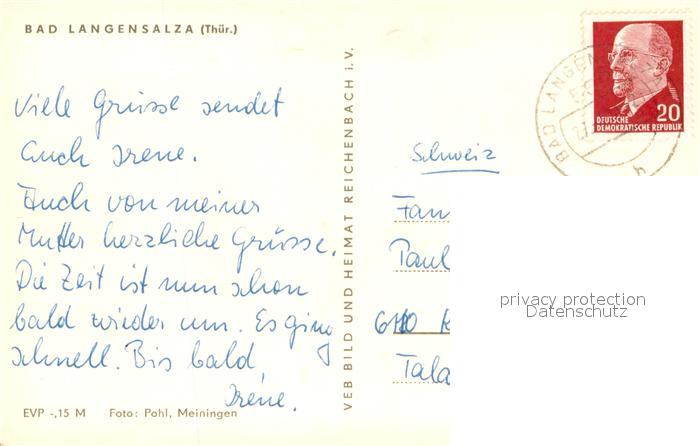 BAD LANGENSALZA (Thür.)
Viele Grüsse sendet
Euch Irene.
Auch von meiner
Mutter herzliche Grüsse.
Die Zeit ist nun schon
bald wieder um. Es ging
schnell. Bis bald,
Irene.
EVP -,15 M Foto: Pohl, Meiningen
VEB BILD UND HEIMAT REICHENBACH i. V.
BAD LANGEN
20
DEUTSCHE
DEMOKRATISCHE REPUBLIK
Schweiz
Fam
Paul
Tala
privacy protection
Datenschutz